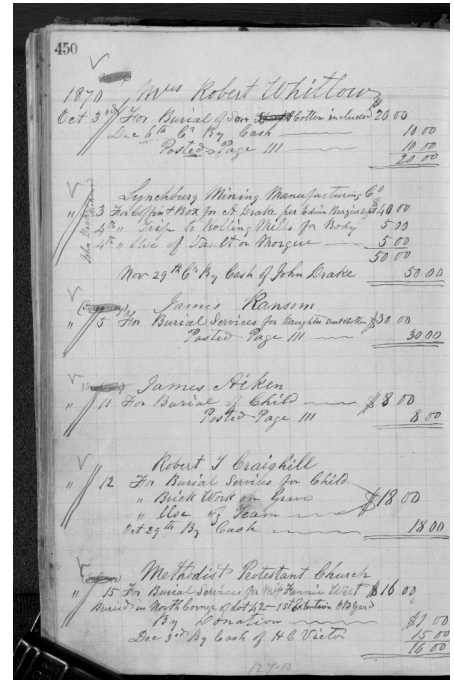 450
1870 Mrs Robert Whitlow
Oct 3rd For Burial of Son Cotton included $20 00
Dec 6th Cr By Cash 10 00
Posted Page 111 10 00
20 00
Lynchburg Mining Manufacturing Co
" 3 For Coffin & Box for A Drake per Edwin $40 00
4th " Trip to Rolling Mills for Body 5 00
4th " Use of Vault or Morgue 5 00
50 00
Nov 29th Cr By Cash of John Drake 50 00
James Ransom
" 5 For Burial Services for Daughter $30 00
Posted Page 111 30 00
James Aiken
" 11 For Burial of Child $8 00
Posted Page 111 8 00
Robert T Craighill
" 12 For Burial Services for Child
" Brick Work on Grave $18 00
" Use of Team
Oct 29th By Cash 18 00
Methodist Protestant Church
" 15 For Burial Services for Mrs Fannie West $16 00
Buried in North Corner of Lot 42 - 1st Extention Old Yard
By Donation $1 00
Dec 3rd By Cash of H C Victor 15 00
16 00
127 00